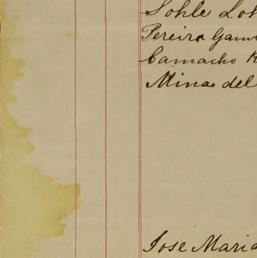 Sohle Lot
Pereira Gam
Camacho R
Minas del
Jose Maria